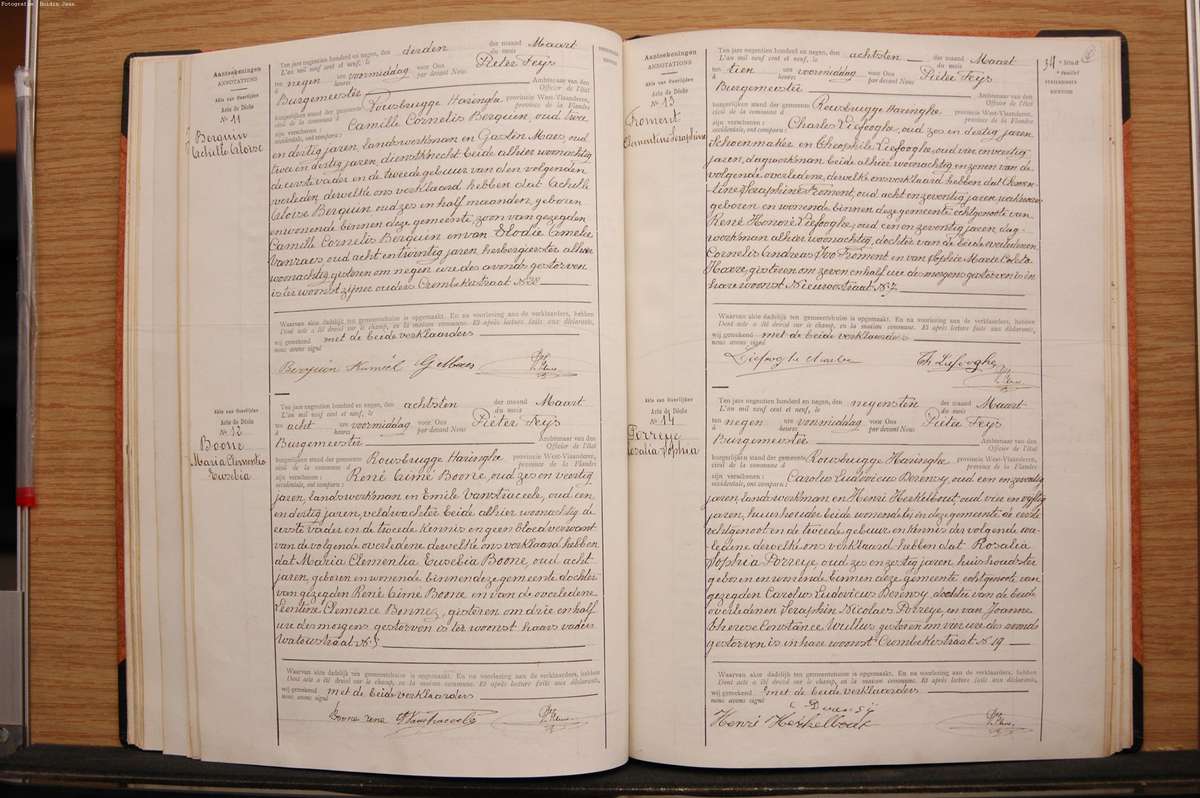 Fotografie: Boidin Jean
Aanteekeningen
ANNOTATIONS
Akte van Overlijden
Acte de Décès
N° 11
Berquin
Achille Aloïse
Ten jare negentien honderd en negen, den derden der maand Maart
L'an mil neuf cent et neuf, le du mois
ten negen ure voormiddag voor Ons Pieter Feys
à heures par devant Nous
Burgemeester Ambtenaar van den
Officier de l'état
burgerlijken stand der gemeente Rousbrugge Haringhe provincie West-Vlaanderen,
civil de la commune d province de la Flandre
zijn verschenen : Camille Cornelis Berquin, oud twee
occidentale, ont comparu :
en dertig jaren, landswerkman en Gaston Maes, oud
twee en dertig jaren, dienstknecht beide alhier woonachtig
de eerste vader en de tweede gebuur van den volgenden
overleden dewelke ons verklaard hebben dat Achille
Aloïse Berquin oud zes en half maanden, geboren
en wonende binnen deze gemeente, zoon van gezegden
Camille Cornelis Berquin en van Elodie Camelie
Vanraes oud acht en twintig jaren herbergierster alhier
woonachtig, gisteren om negen ure des avonds gestorven
is ter woonst zijner ouders Crombekestraat N° 20
Waarvan akte dadelijk ten gemeentehuize is opgemaakt. En na voorlezing aan de verklaarders, hebben
Dont acte a été dressé sur le champ, en la maison commune. Et après lecture faite aux déclarants,
wij geteekend met de beide verklaarders
nous avons signé
Berquin Kamiel G. Maes
Akte van Overlijden
Acte de Décès
N° 12
Boone
Maria Clementia
Eusebia
Ten jare negentien honderd en negen, den achtsten der maand Maart
L'an mil neuf cent et neuf, le du mois
ten acht ure voormiddag voor Ons Pieter Feys
à heures par devant Nous
Burgemeester Ambtenaar van den
Officier de l'état
burgerlijken stand der gemeente Rousbrugge Haringhe provincie West-Vlaanderen,
civil de la commune d province de la Flandre
zijn verschenen : René Cimé Boone, oud zes en veertig
occidentale, ont comparu :
jaren, landswerkman en Emile Vanstraceele, oud een
en dertig jaren, veldwachter beide alhier woonachtig de
eerste vader en de tweede kennis en geen bloedverwant
van de volgende overledene dewelke ons verklaard hebben
dat Maria Clementia Eusebia Boone, oud acht
jaren, geboren en wonende binnen deze gemeente dochter
van gezegden René Cimé Boone en van de overledene
Leontine Clemence Bonnez, gisteren om drie en half
ure des morgens gestorven is ter woonst haars vaders
Watoustraat N° 5
Waarvan akte dadelijk ten gemeentehuize is opgemaakt. En na voorlezing aan de verklaarders, hebben
Dont acte a été dressé sur le champ, en la maison commune. Et après lecture faite aux déclarants,
wij geteekend met de beide verklaarders
nous avons signé
Boone rene
Aanteekeningen
ANNOTATIONS
Akte van Overlijden
Acte de Décès
N° 13
Froment
Clementine Seraphine
Ten jare negentien honderd en negen, den achtsten der maand Maart
L'an mil neuf cent et neuf, le du mois
ten tien ure voormiddag voor Ons Pieter Feys
à heures par devant Nous
Burgemeester Ambtenaar van den
Officier de l'État
burgerlijken stand der gemeente Rousbrugge Haringhe provincie West-Vlaanderen,
civil de la commune d province de la Flandre
zijn verschenen : Charles Liefooghe, oud zes en dertig jaren,
occidentale, ont comparu :
schoenmaker en Theophile Liefooghe, oud vier en veertig
jaren, dagwerkman beide alhier woonachtig en zonen van de
volgende overledene, dewelke ons verklaard hebben dat Clemen-
tine Seraphine Froment, oud acht en zeventig jaren, werkvrouw
geboren en wonende binnen deze gemeente echtgenote van
René Honoré Liefooghe, oud een en zeventig jaren, dag-
werkman alhier woonachtig, dochter van de beide overledenen
Cornelis Andreas Ivo Froment en van Sophie Marie Coleta
Haeve, gisteren om zeven en half ure des morgens gestorven is in
hare woonst Nieuwstraat N° 7
Waarvan akte dadelijk ten gemeentehuize is opgemaakt. En na voorlezing aan de verklaarders, hebben
Dont acte a été dressé sur le champ, en la maison commune. Et après lecture faite aux déclarants,
wij geteekend met de beide verklaarders
nous avons signé
Liefooghe charles Th Liefooghe
34
Akte van Overlijden
Acte de Décès
N° 14
Dorreye
Rosalia Sophia
Ten jare negentien honderd en negen, den negensten der maand Maart
L'an mil neuf cent et neuf, le du mois
ten negen ure voormiddag voor Ons Pieter Feys
à heures par devant Nous
Burgemeester Ambtenaar van den
Officier de l'État
burgerlijken stand der gemeente Rousbrugge Haringhe provincie West-Vlaanderen,
civil de la commune d province de la Flandre
zijn verschenen : Carolus Ludovicus Derensy, oud een en zeventig
occidentale, ont comparu :
jaren, landswerkman en Henri Herkelbout, oud vier en vijftig
jaren, huurhouder beide wonende in deze gemeente de eerste
echtgenoot en de tweede gebuur en kennis der volgende over-
ledene dewelke ons verklaard hebben dat Rosalia
Sophia Dorreye oud zes en zestig jaren, huishoudster
geboren en wonende binnen deze gemeente echtgenote van
gezegden Carolus Ludovicus Derensy, dochter van de beide
overledenen Seraphin Nicolaes Dorreye en van Joanne
Therese Constance Wullus gisteren om vier ure des avonds
gestorven is in hare woonst Crombekestraat N° 19
Waarvan akte dadelijk ten gemeentehuize is opgemaakt. En na voorlezing aan de verklaarders, hebben
Dont acte a été dressé sur le champ, en la maison commune. Et après lecture faite aux déclarants,
wij geteekend met de beide verklaarders
nous avons signé
c Derensy
Henri Herkelbout